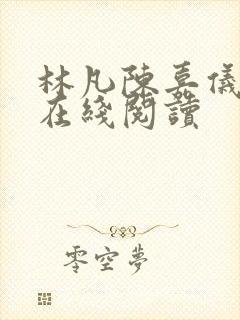 林凡陳嘉儀
在綫閱讀
零空夢